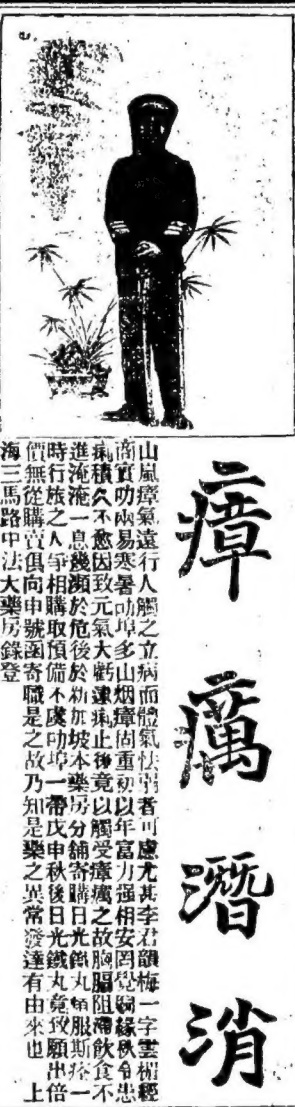 瘴癘潛消
山嵐瘴氣遠行人觸之立病而體氣怯弱者可慮尤甚李君韻梅一字雲楣經
商實叻兩易寒暑叻埠多山烟瘴固重初以年富力强相安罔覺嗣緣秋令患
痢積久不愈因致元氣大虧逮痢止後竟以觸受瘴癘之故胸膈阻滯飲食不
進淹淹一息幾瀕於危後於新加坡本藥房分鋪寄購日光鐵丸頻服斯疾一
時行旅之人爭相購取預備不虞叻埠一帶戊申秋後日光鐵丸竟致願出倍
價無從購賣俱向申號函寄職是之故乃知是藥之異常發達有由來也 上
海三馬路中法大藥房錄登